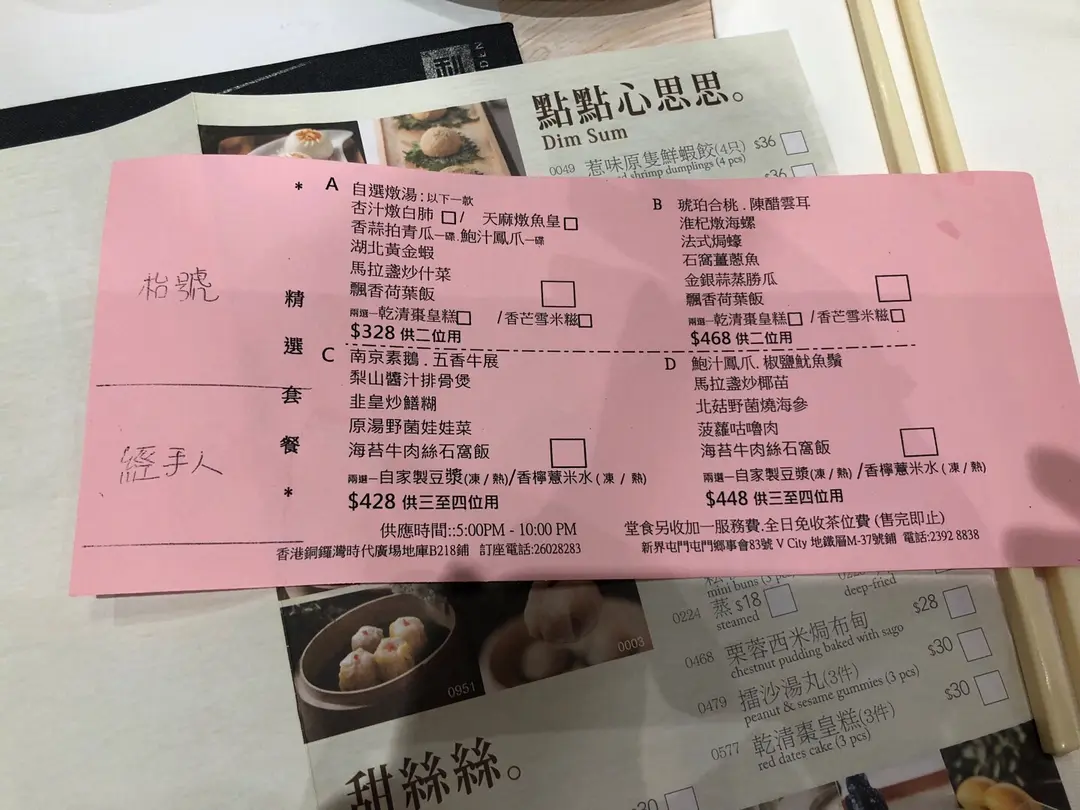 點點心思思。
Dim Sum
0049 惹味原隻鮮蝦餃(4只) $36
shrimp dumplings (4 pcs)
枱號
經手人
* 精選套餐 *
A 自選燉湯:以下一款
杏汁燉白肺 □/ 天麻燉魚皇□
香蒜拍青瓜一碟.鮑汁鳳爪一碟
湖北黃金蝦
馬拉盞炒什菜
飄香荷葉飯
兩選一乾清棗皇糕□ /香芒雪米糍□
$328 供二位用
B 琥珀合桃．陳醋雲耳
淮杞燉海螺
法式焗蠔
石窩薑蔥魚
金銀蒜蒸勝瓜
飄香荷葉飯
兩選一乾清棗皇糕□ /香芒雪米糍□
$468 供二位用
C 南京素鵝．五香牛展
梨山醬汁排骨煲
韭皇炒鱔糊
原湯野菌娃娃菜
海苔牛肉絲石窩飯
兩選一自家製豆漿(凍 / 熱)/香檸薏米水 ( 凍 / 熱)
$428 供三至四位用
D 鮑汁鳳爪. 椒鹽魷魚鬚
馬拉盞炒椰苗
北菇野菌燒海參
菠蘿咕嚕肉
海苔牛肉絲石窩飯
兩選一自家製豆漿(凍 / 熱)/香檸薏米水 ( 凍 / 熱)
$448 供三至四位用
供應時間::5:00PM - 10:00 PM
堂食另收加一服務費.全日免收茶位費 (售完即止)
香港銅鑼灣時代廣場地庫B218鋪 訂座電話:26028283
新界屯門屯門鄉事會83號 V City 地鐵層M-37號鋪 電話:2392 8838
mini buns (3 pcs)
deep-fried
0224 蒸 $18
steamed
$28
0468 栗蓉西米焗布甸
chestnut pudding baked with sago
$30
0479 擂沙湯丸(3件)
peanut & sesame gummies (3 pcs)
$30
0577 乾清棗皇糕(3件)
red dates cake (3 pcs)
0951
0003
甜絲絲。